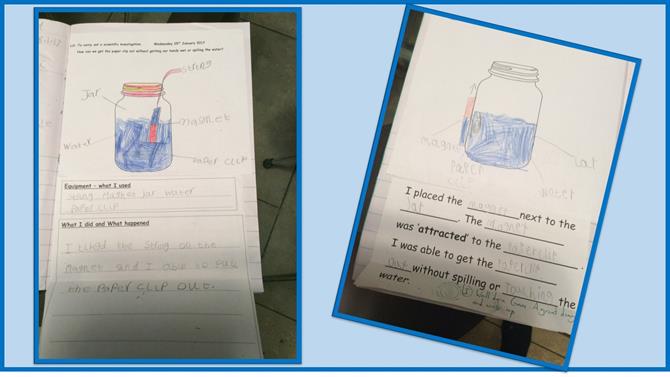 L.O. To carry out a scientific investigation. Wednesday 25th January 2017
How can we get the paper clip out without getting our hands wet or spilling the water?
Jar
String
magnet
Water
PaPer CLIP
Equipment - what I used
String Magnet Jar water
PaPer CLIP
What I did and What happened
I the String on the
Magnet and I able to
the PaPer CLIP Out.
magnet
PaPer
water
I placed the magnet next to the
Jat. The magnet
was 'attracted' to the .
I was able to get the
out without spilling or touching the
water.